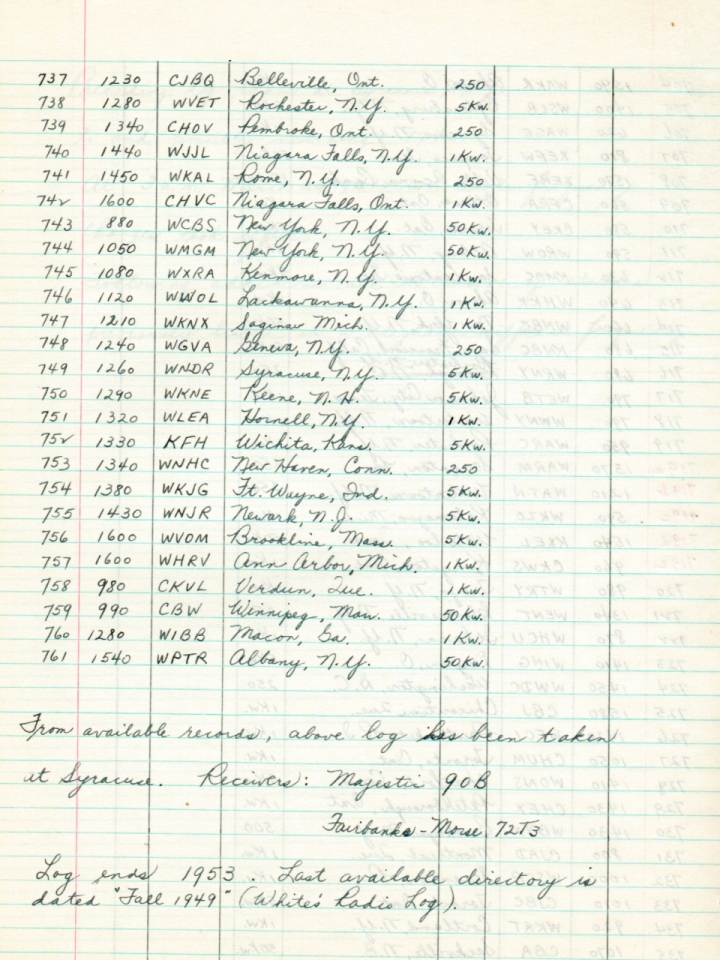 737 1230 CJBQ Belleville, Ont. 250
738 1280 WVET Rochester, N.Y. 5 Kw.
739 1340 CHOV Pembroke, Ont. 250
740 1440 WJJL Niagara Falls, N.Y. 1 Kw.
741 1450 WKAL Rome, N.Y. 250
742 1600 CHVC Niagara Falls, Ont. 1 Kw.
743 880 WCBS New York, N.Y. 50 Kw.
744 1050 WMGM New York, N.Y. 50 Kw.
745 1080 WXRA Kenmore, N.Y. 1 Kw.
746 1120 WWOL Lackawanna, N.Y. 1 Kw.
747 1210 WKNX Saginaw Mich. 1 Kw.
748 1240 WGVA Geneva, N.Y. 250
749 1260 WNDR Syracuse, N.Y. 5 Kw.
750 1290 WKNE Keene, N.H. 5 Kw.
751 1320 WLEA Hornell, N.Y. 1 Kw.
752 1330 KFH Wichita, Kans. 5 Kw.
753 1340 WNHC New Haven, Conn. 250
754 1380 WKJG Ft. Wayne, Ind. 5 Kw.
755 1430 WNJR Newark, N.J. 5 Kw.
756 1600 WVOM Brookline, Mass. 5 Kw.
757 1600 WHRV Ann Arbor, Mich. 1 Kw.
758 980 CKVL Verdun, Que. 1 Kw.
759 990 CBW Winnipeg, Man. 50 Kw.
760 1280 WIBB Macon, Ga. 1 Kw.
761 1540 WPTR Albany, N.Y. 50 Kw.
From available records, above log has been taken
at Syracuse. Receivers: Majestic 90B
Fairbanks-Morse 72T3
Log ends 1953. Last available directory is
dated "Fall 1949" (White's Radio Log).